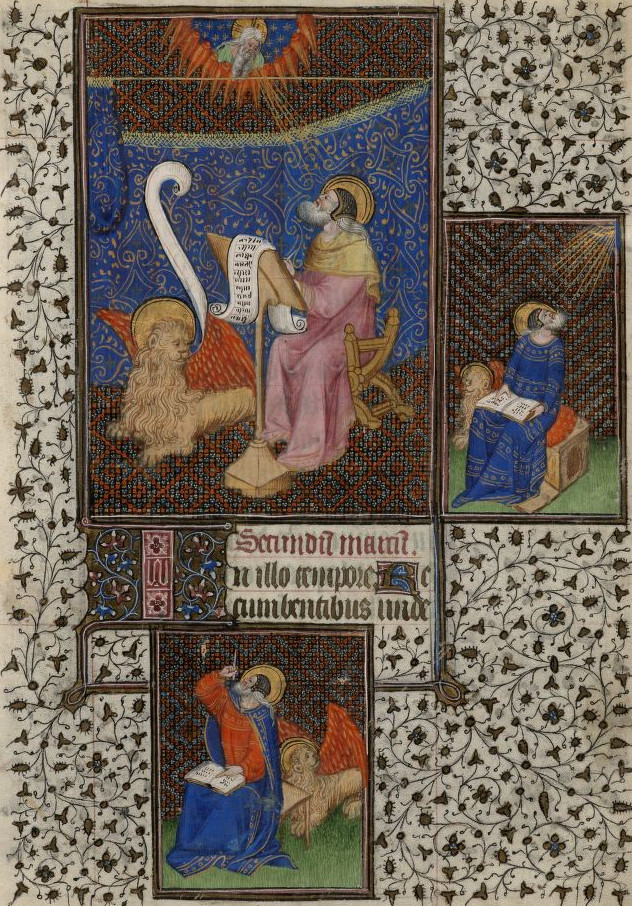 Secundũ marcũ.
In illo tempore Re
cumbentibus unde